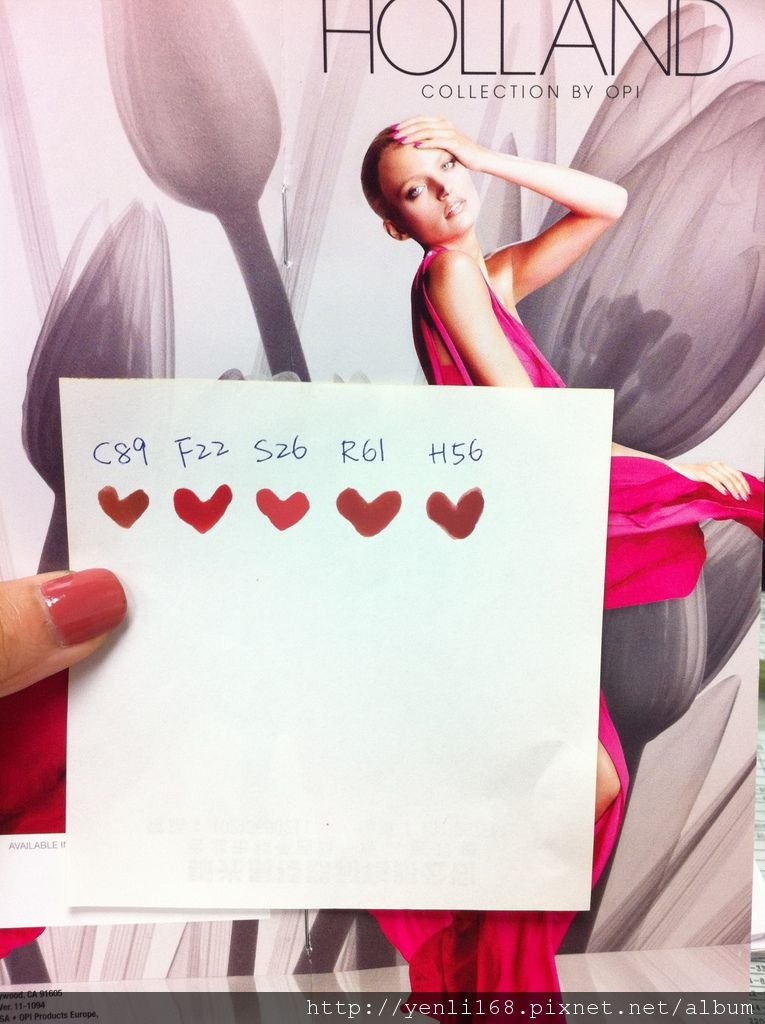 HOLLAND
COLLECTION BY OPI
C89 F22 S26 R61 H56
AVAILABLE IN
ywood, CA 91605
Ver. 11-1094
SA + OPI Products Europe,
http://yenli168.pixnet.net/album